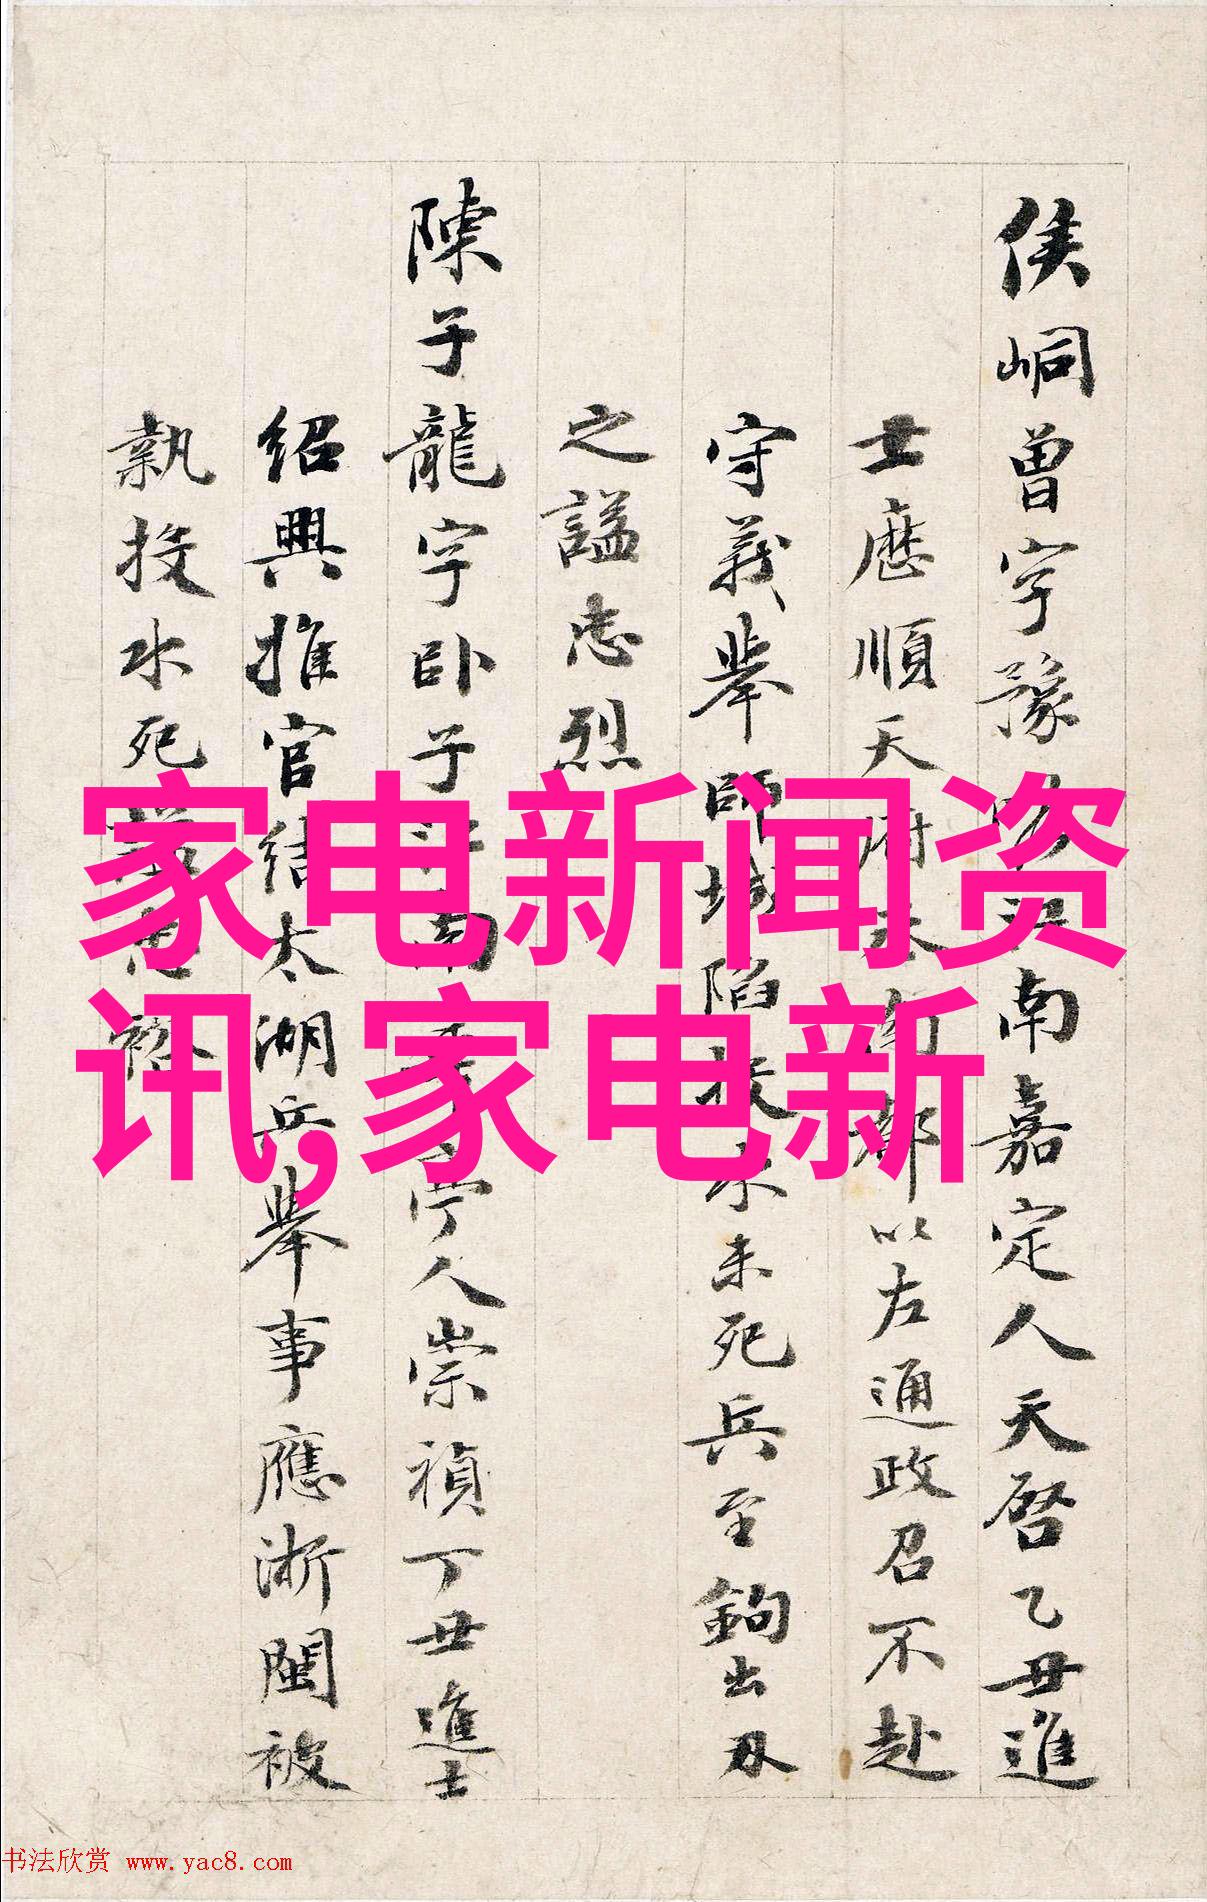 侯峒曾字豫瞻江南嘉定人天啓乙丑進
士歷順天府丞南都以左通政召不赴
守義舉師城陷投水未死兵至鉤出刃
之謚忠烈
陳子龍字卧子江南華亭人崇禎丁丑進士
紹興推官結太湖兵舉事應浙閩被
執投水死謚忠裕
家电新闻资
讯,家电新
书法欣赏 www.yac8.com